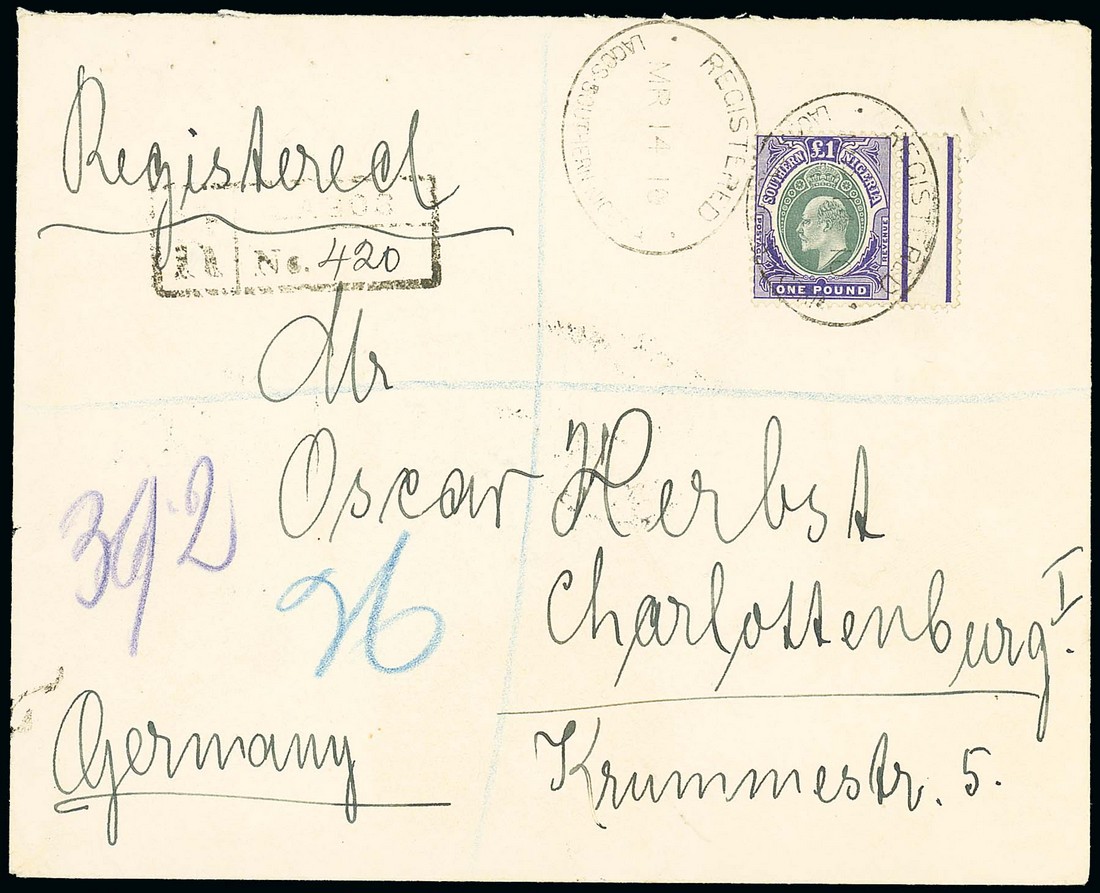 Registered
REGISTERED
MR 14 10
LAGOS-SOUTHERN NIGERIA
REGISTERED
£1
SOUTHERN NIGERIA
POSTAGE
REVENUE
ONE POUND
LAGOS
R
No. 420
Mr
Oscar Herbst
392
26
Charlottenburg I.
Germany
Krummestr. 5.